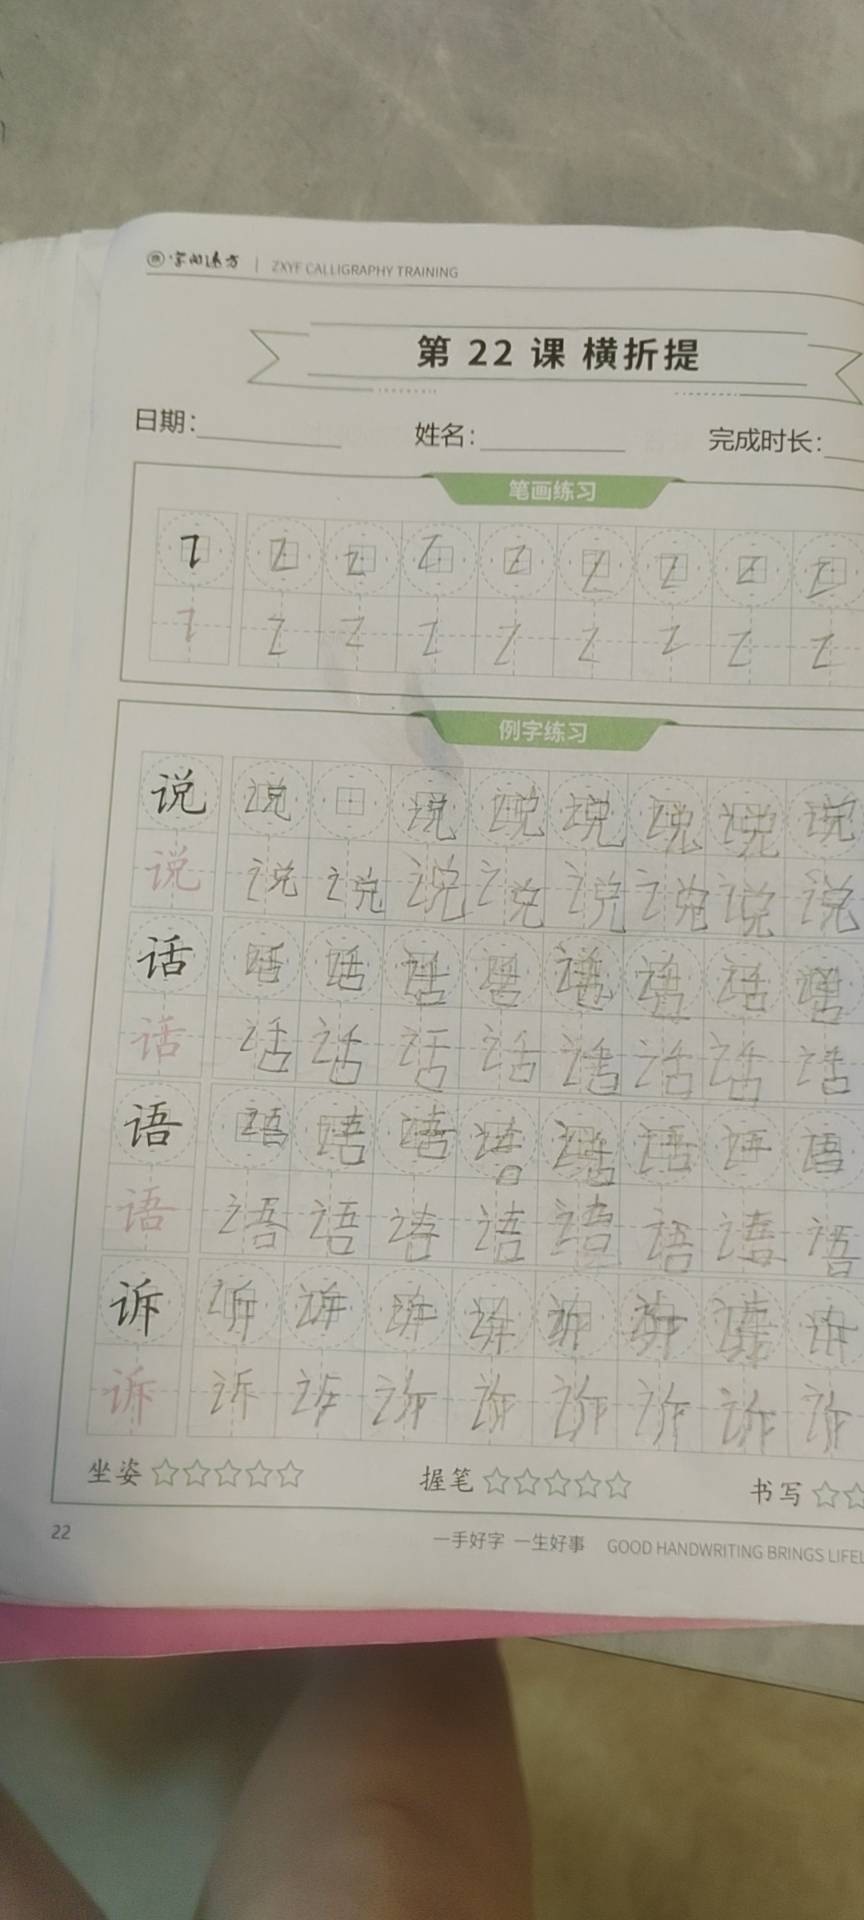 字向远方 | ZXYF CALLIGRAPHY TRAINING
第 22 课 横折提
日期: 姓名: 完成时长:
笔画练习
例字练习
说 说 说 说 说 说 说 说
说 说 说 说 说 说 说 说 说
话 话 话 话 话 话 话 话 话
话 话 话 话 话 话 话 话 话
语 语 语 语 语 语 语 语 语
语 语 语 语 语 语 语 语 语
诉 诉 诉 诉 诉 诉 诉 诉 诉
诉 诉 诉 诉 诉 诉 诉 诉 诉
坐姿 ☆☆☆☆☆ 握笔 ☆☆☆☆☆ 书写 ☆☆
22 一手好字 一生好事 GOOD HANDWRITING BRINGS